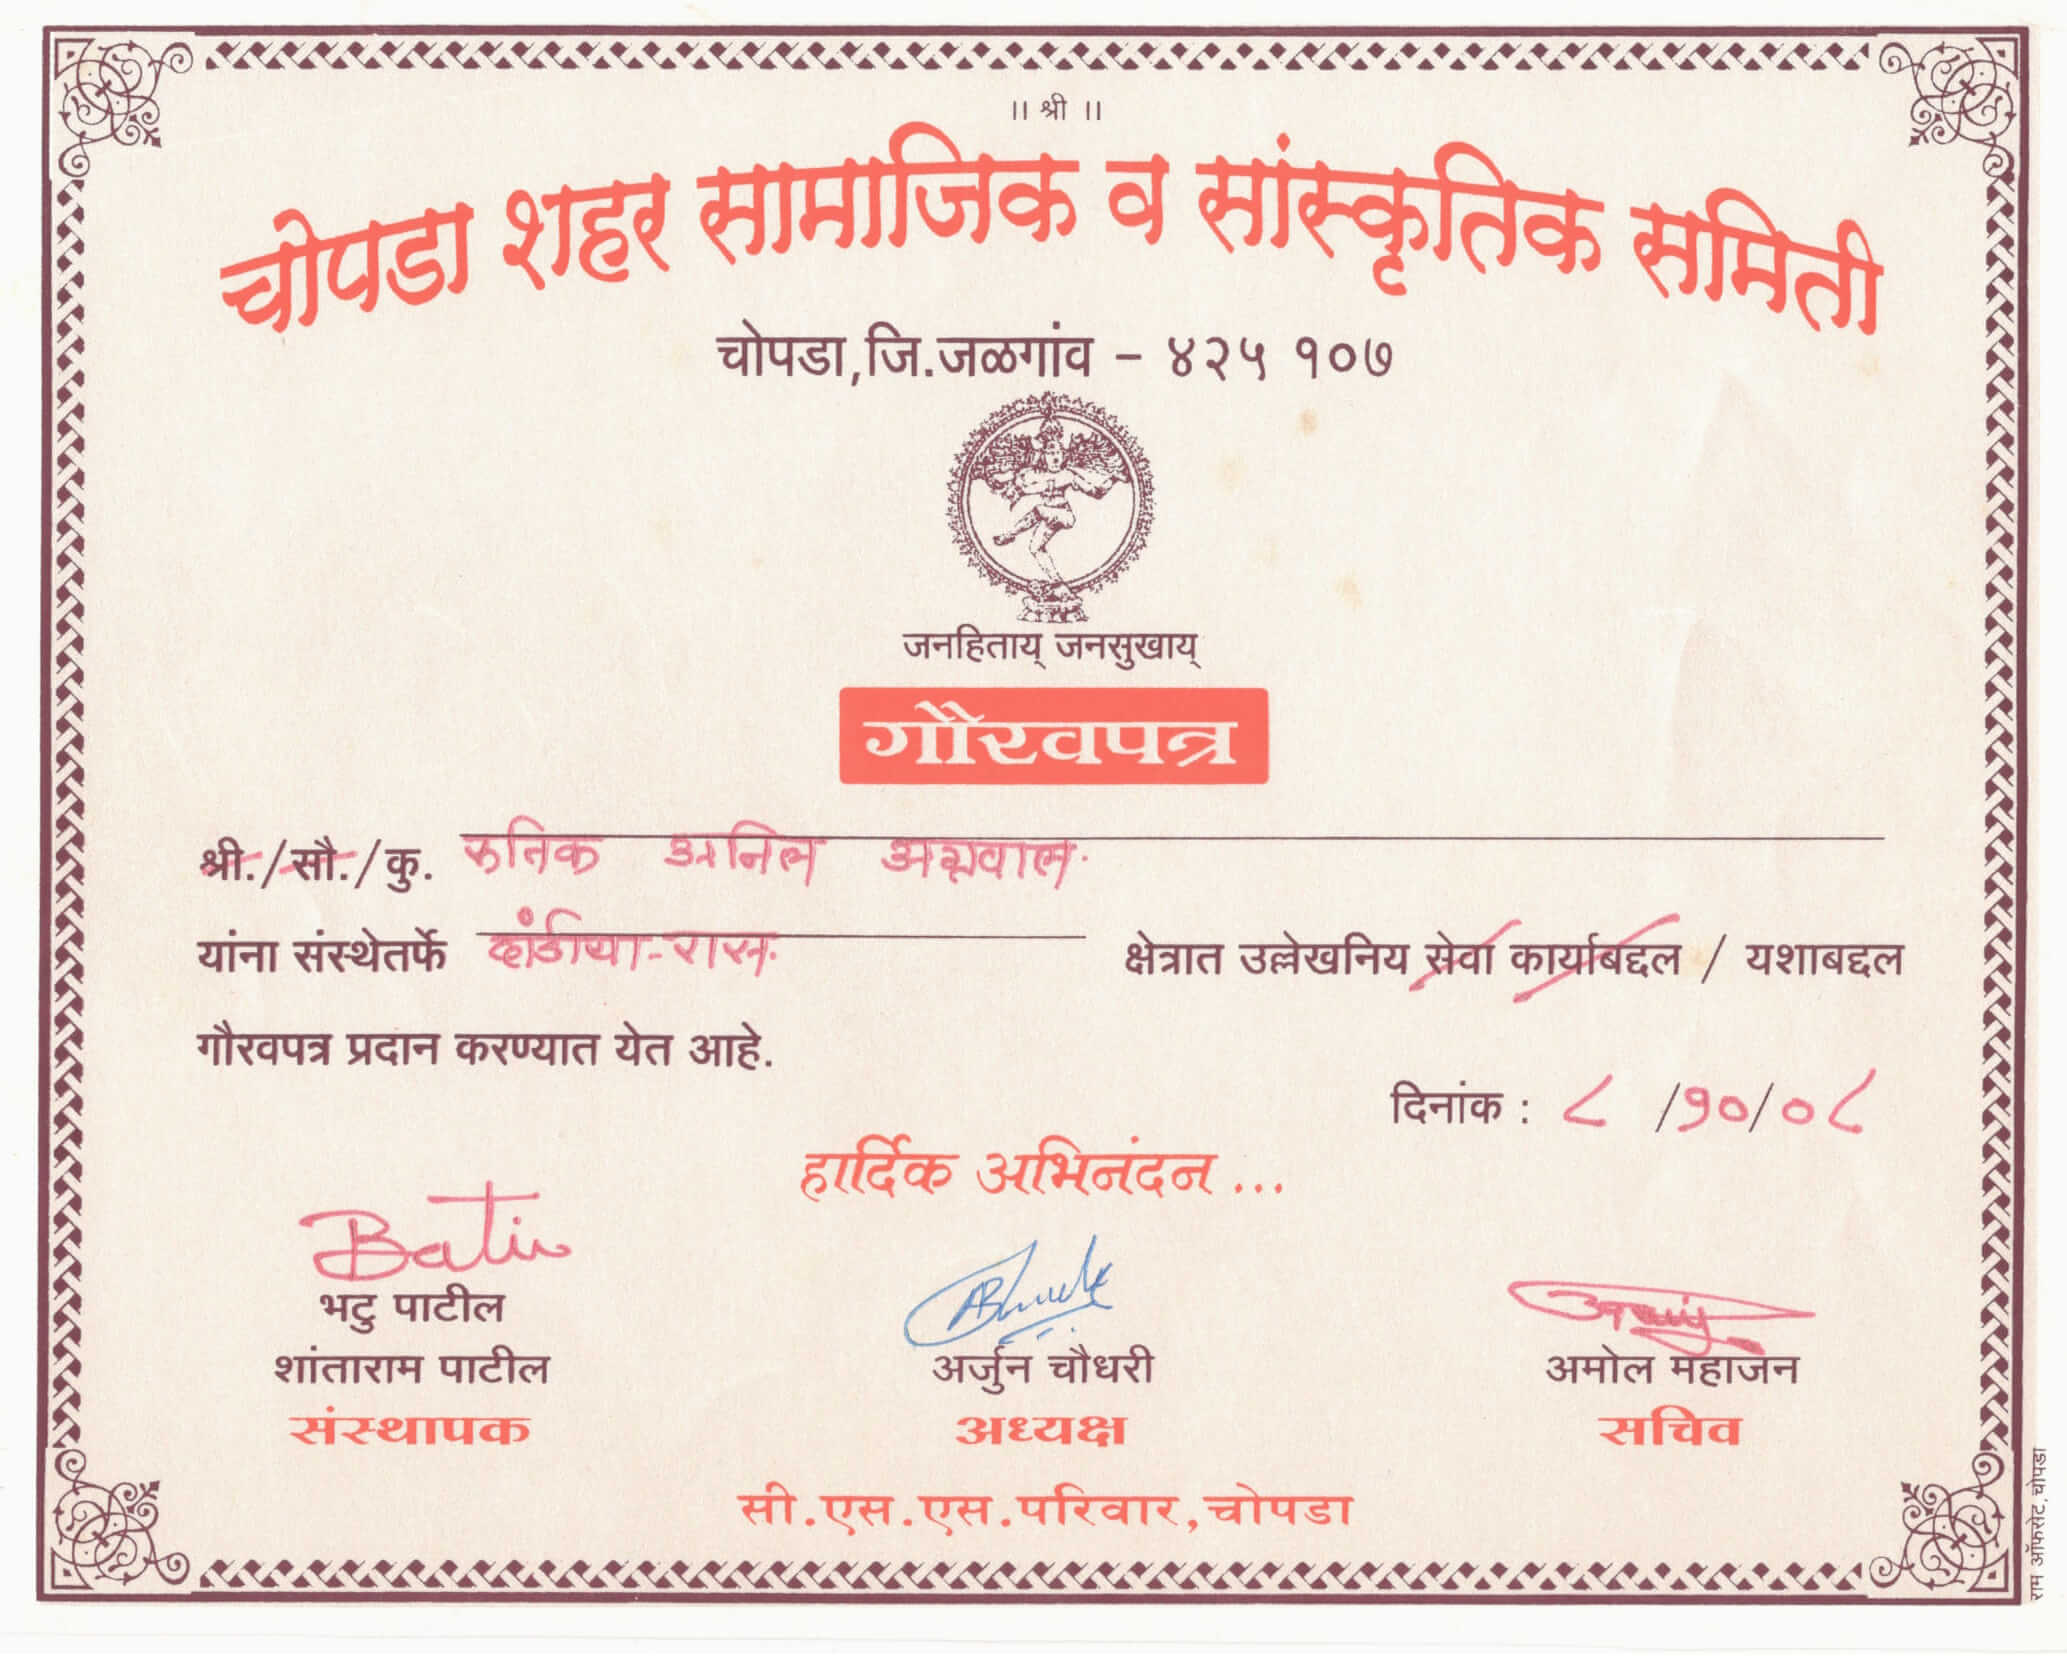 ॥ श्री ॥
चोपडा शहर सामाजिक व सांस्कृतिक समिती
चोपडा,जि.जळगांव - ४२५ १०७
जनहिताय् जनसुखाय्
गौरवपत्र
श्री./सौ./कु. रुनिक अनिल अग्रवाल.
यांना संस्थेतर्फे दांडीया-रास. क्षेत्रात उल्लेखनिय सेवा कार्याबद्दल / यशाबद्दल
गौरवपत्र प्रदान करण्यात येत आहे.
दिनांक : ८ /१०/०८
हार्दिक अभिनंदन ...
भटु पाटील
शांताराम पाटील अर्जुन चौधरी अमोल महाजन
संस्थापक अध्यक्ष सचिव
सी.एस.एस.परिवार,चोपडा
राम ऑफसेट, चोपडा